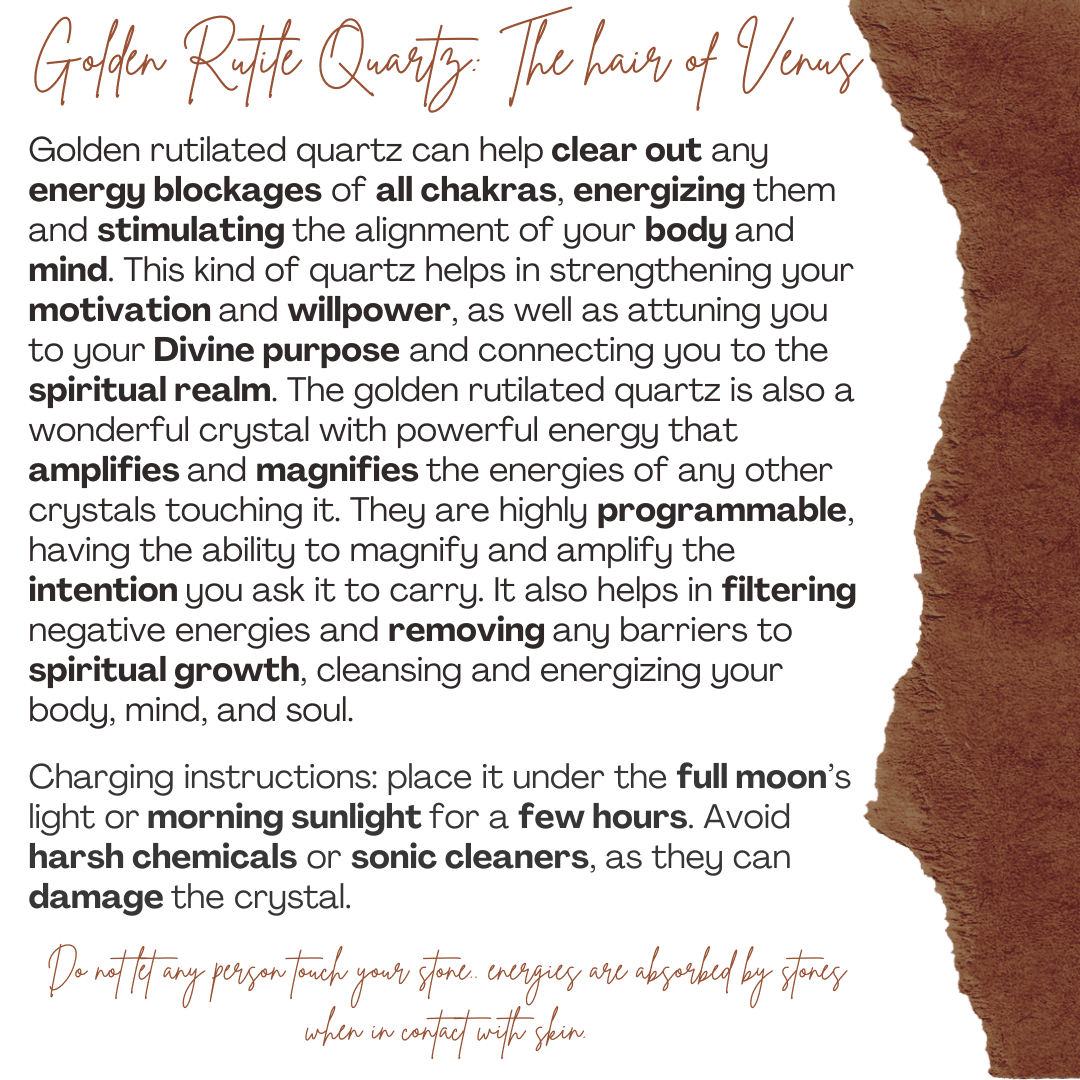 Golden Rutile Quartz: The hair of Venus
Golden rutilated quartz can help clear out any
energy blockages of all chakras, energizing them
and stimulating the alignment of your body and
mind. This kind of quartz helps in strengthening your
motivation and willpower, as well as attuning you
to your Divine purpose and connecting you to the
spiritual realm. The golden rutilated quartz is also a
wonderful crystal with powerful energy that
amplifies and magnifies the energies of any other
crystals touching it. They are highly programmable,
having the ability to magnify and amplify the
intention you ask it to carry. It also helps in filtering
negative energies and removing any barriers to
spiritual growth, cleansing and energizing your
body, mind, and soul.
Charging instructions: place it under the full moon's
light or morning sunlight for a few hours. Avoid
harsh chemicals or sonic cleaners, as they can
damage the crystal.
Do not let any person touch your stone.. energies are absorbed by stones
when in contact with skin.